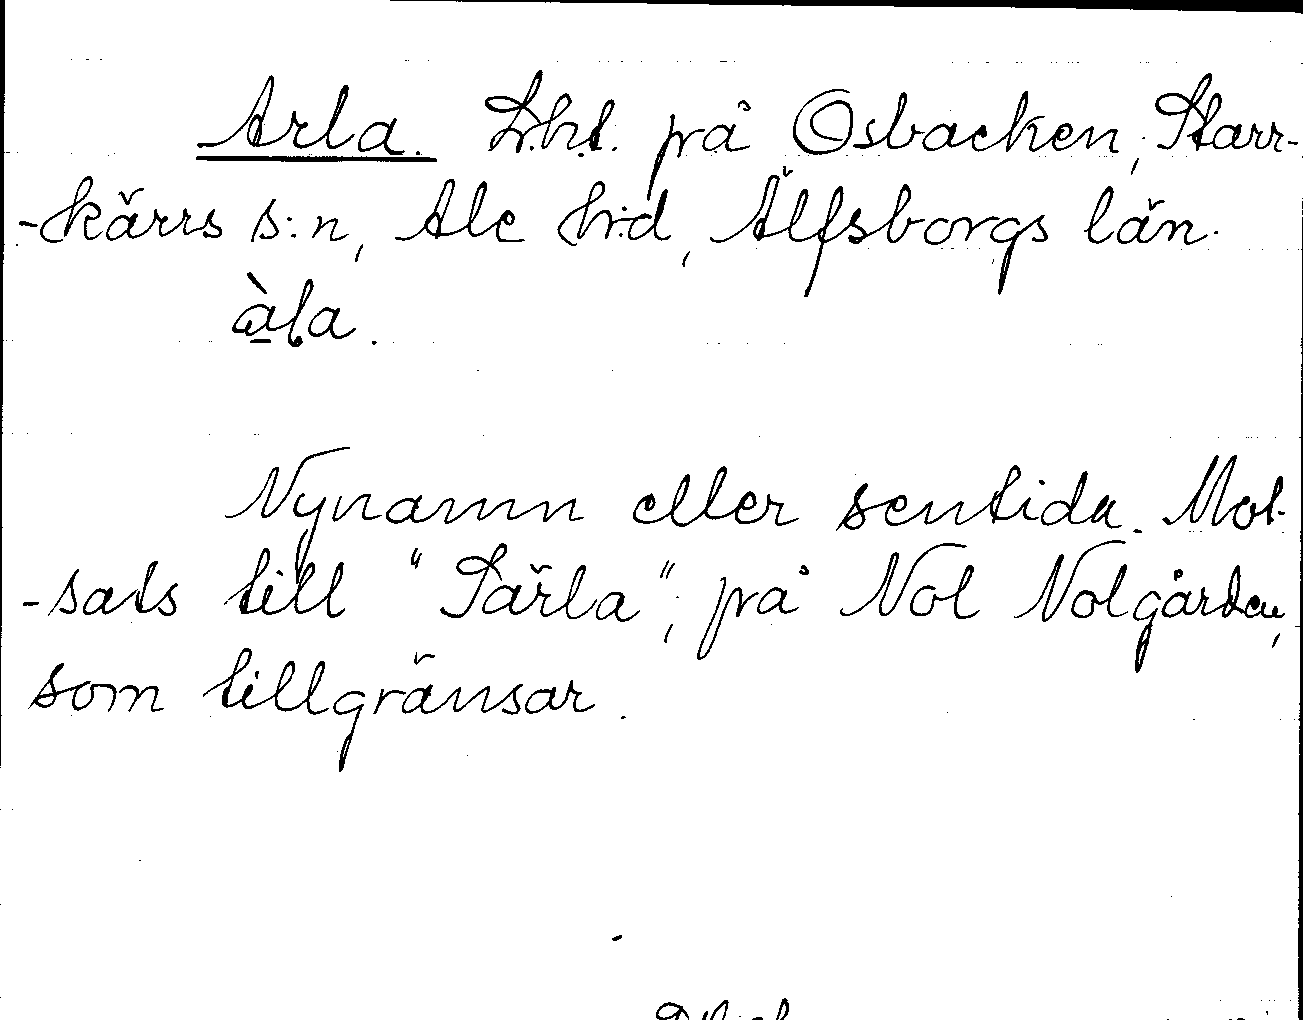 Arla. Lht. på Osbacken, Starr-
-kärrs s:n, Ale hrd, Älfsborgs län.
àla.
Nynamn eller sentida. Mot-
-sats till "Särla", på Nol Nolgården,
som tillgränsar.